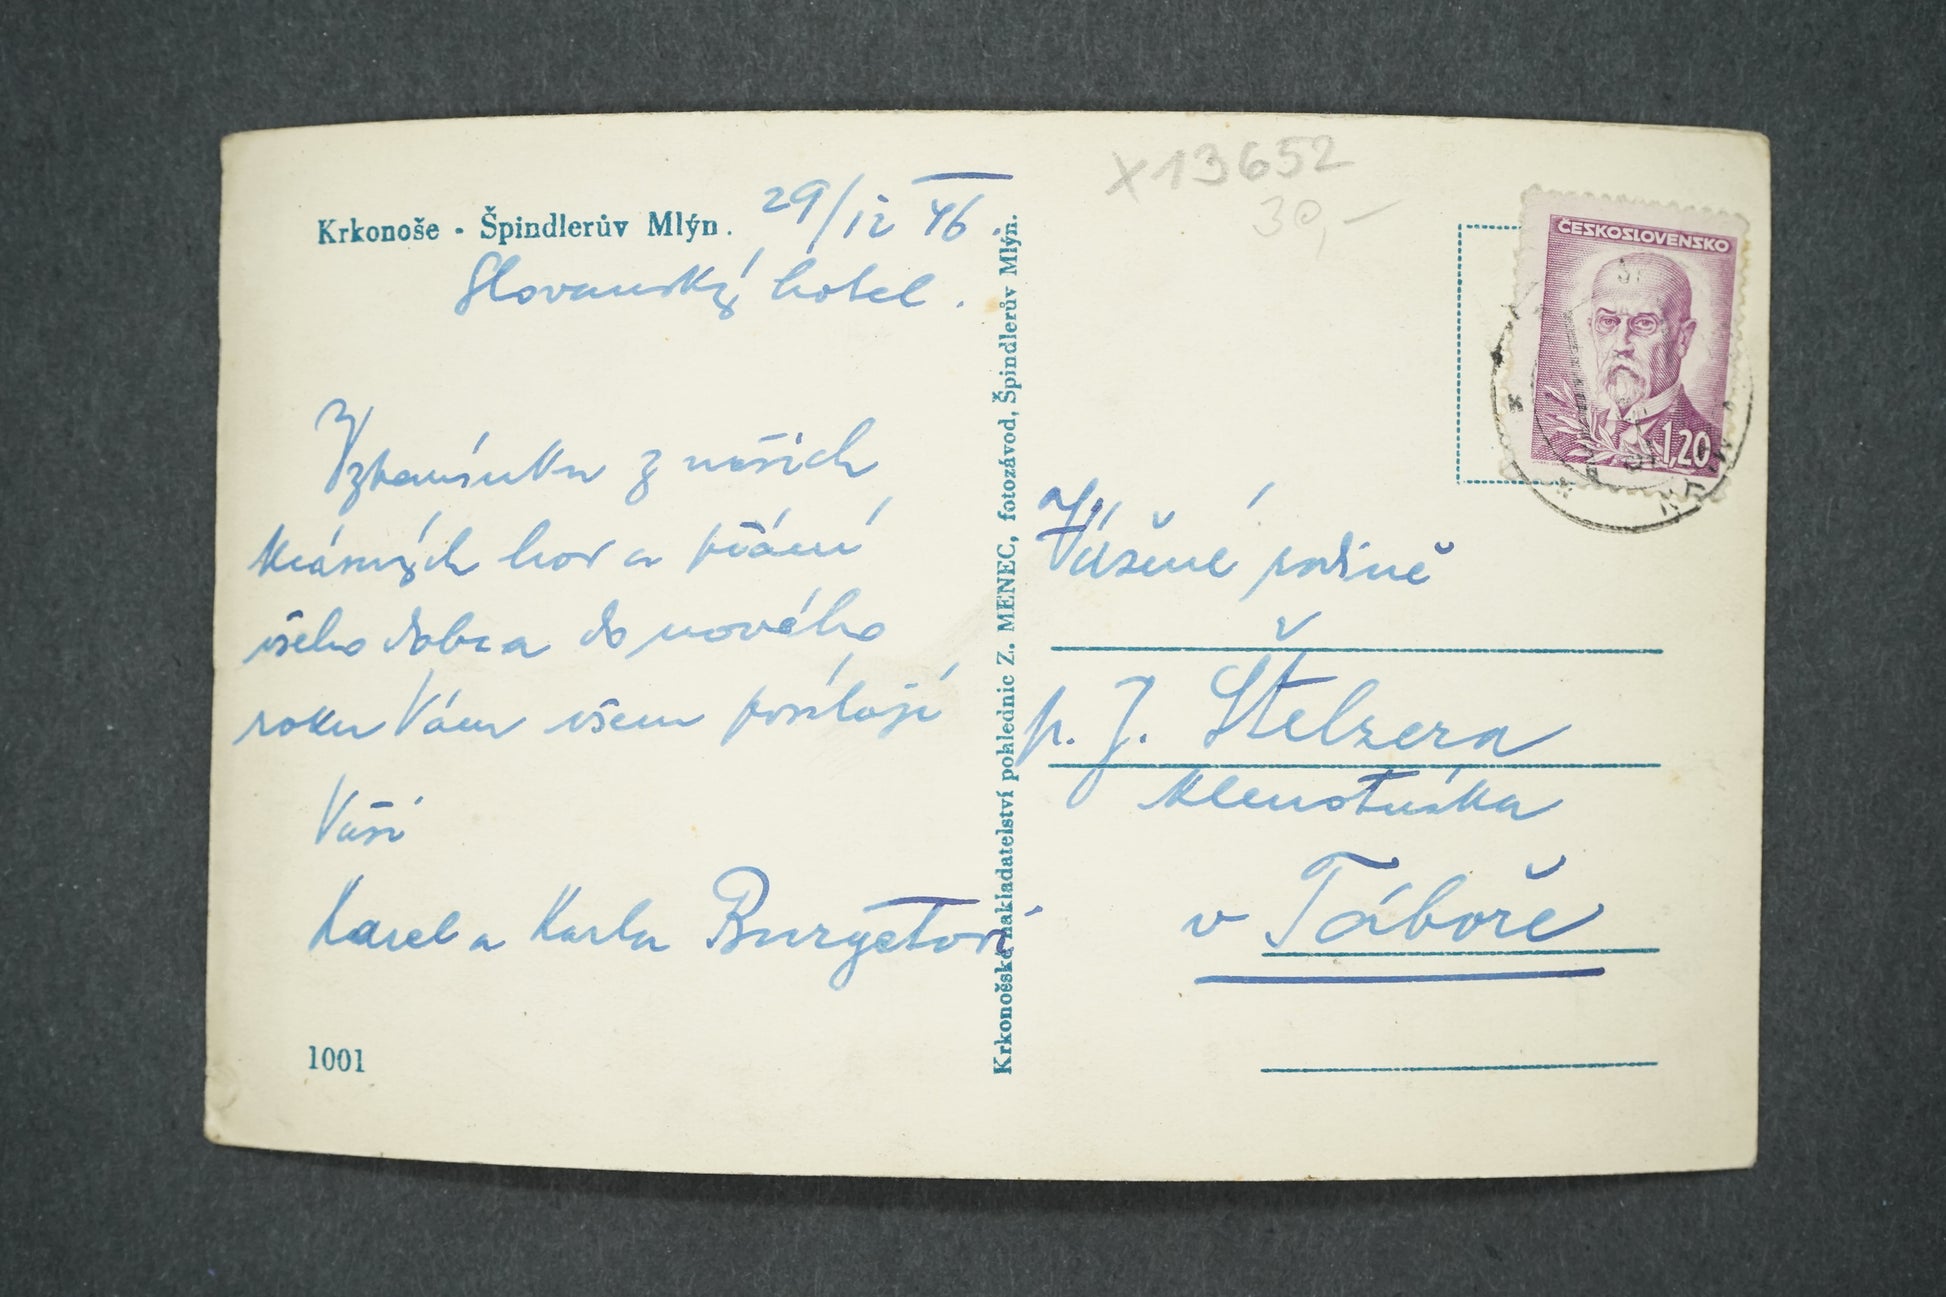 Krkonoše - Špindlerův Mlýn.
29/12 46.
Slovanský hotel.
Vzpomínku z našich
krásných hor a přání
všeho dobra do nového
roku Vám všem posílají
Vaši
Karel a Karla Burgetovi
1001
Krkonošské nakladatelství pohlednic Z. MENEC, fotozávod, Špindlerův Mlýn.
X13652
30,-
ČESKOSLOVENSKO
1,20
Vážené rodině
p. J. Štelzera
klenotníka
v Táboře